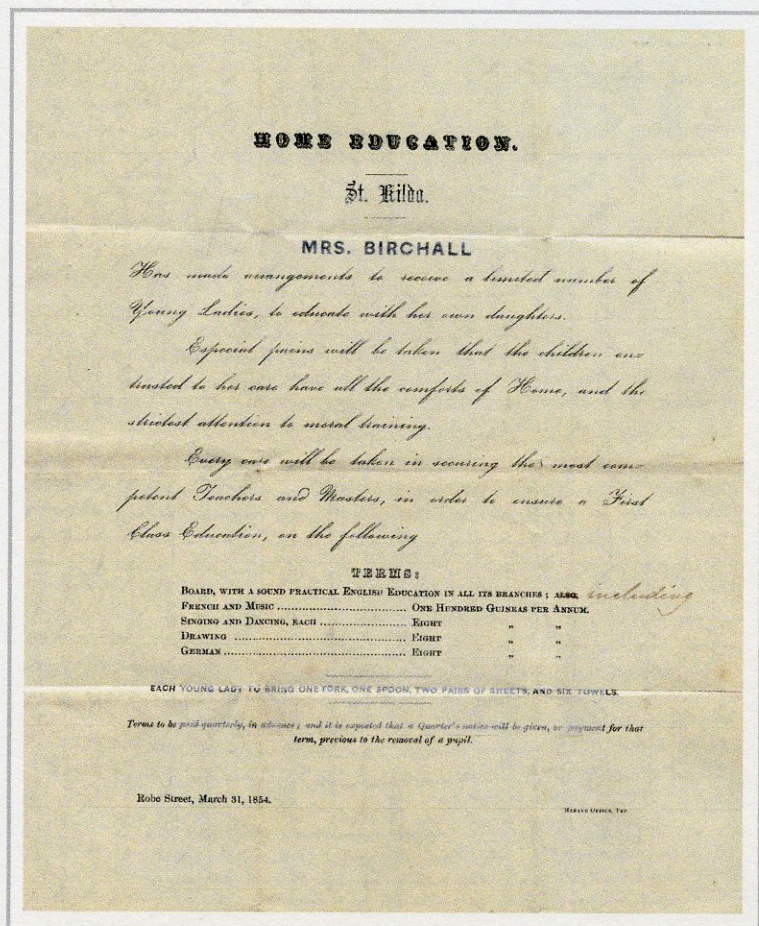 HOME EDUCATION.
St. Kilda.
MRS. BIRCHALL
Has made arrangements to receive a limited number of
Young Ladies, to educate with her own daughters.
Especial pains will be taken that the children en=
trusted to her care have all the comforts of Home, and the
strictest attention to moral training.
Every care will be taken in securing the most com=
petent Teachers and Masters, in order to ensure a First
Class Education, on the following
TERMS:
BOARD, WITH A SOUND PRACTICAL ENGLISH EDUCATION IN ALL ITS BRANCHES; ALSO, including
FRENCH AND MUSIC ........................................ ONE HUNDRED GUINEAS PER ANNUM.
SINGING AND DANCING, EACH .......................... EIGHT „ „
DRAWING .................................................... EIGHT „ „
GERMAN ...................................................... EIGHT „ „
EACH YOUNG LADY TO BRING ONE FORK, ONE SPOON, TWO PAIRS OF SHEETS, AND SIX TOWELS.
Terms to be paid quarterly, in advance; and it is expected that a Quarter's notice will be given, or payment for that
term, previous to the removal of a pupil.
Robe Street, March 31, 1854.
HERALD OFFICE, TYP